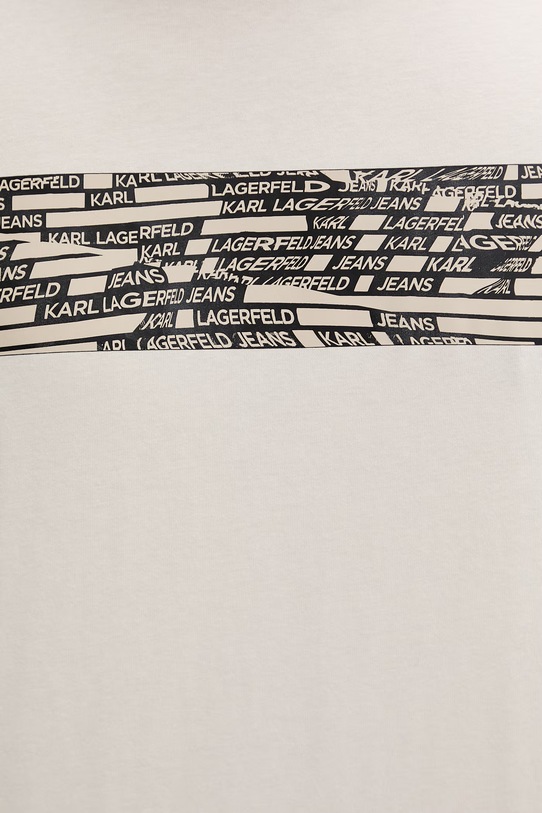 LAGERFELD KARL LAGERFELD JEANS KARL LAGERFELD JEANS
KARL LAGERFELD JEANS KARL LAGERFELD
KARL LAGERFELD JEANS
JEANS KARL LAGERFEL JEANS
KARL LAGERFELD
KARL LAGERFELD JEANS KARL LAGERFELD
JEANS KARL LAGERFELD JEANS KARL LAGERFELD
JEANS LAGERFELD JEANS KARL
LAGERFELD
KARL LAGERFELD JEANS
KARL LAGERFELD JEANS
KARL LAGERFELD JEANS KARL LAGERFELD